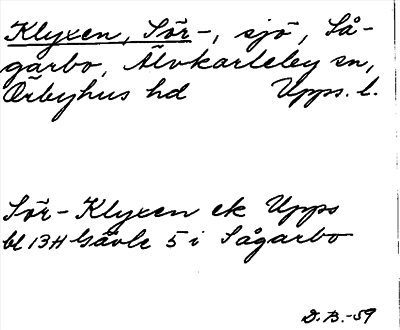 Klyxen, Sör-, sjö, Så-
garbo, Älvkarleby sn,
Örbyhus hd Upps. l.
Sör-Klyxen ek Upps
bl 13H Gävle 5 i Sågarbo
D.B.-59